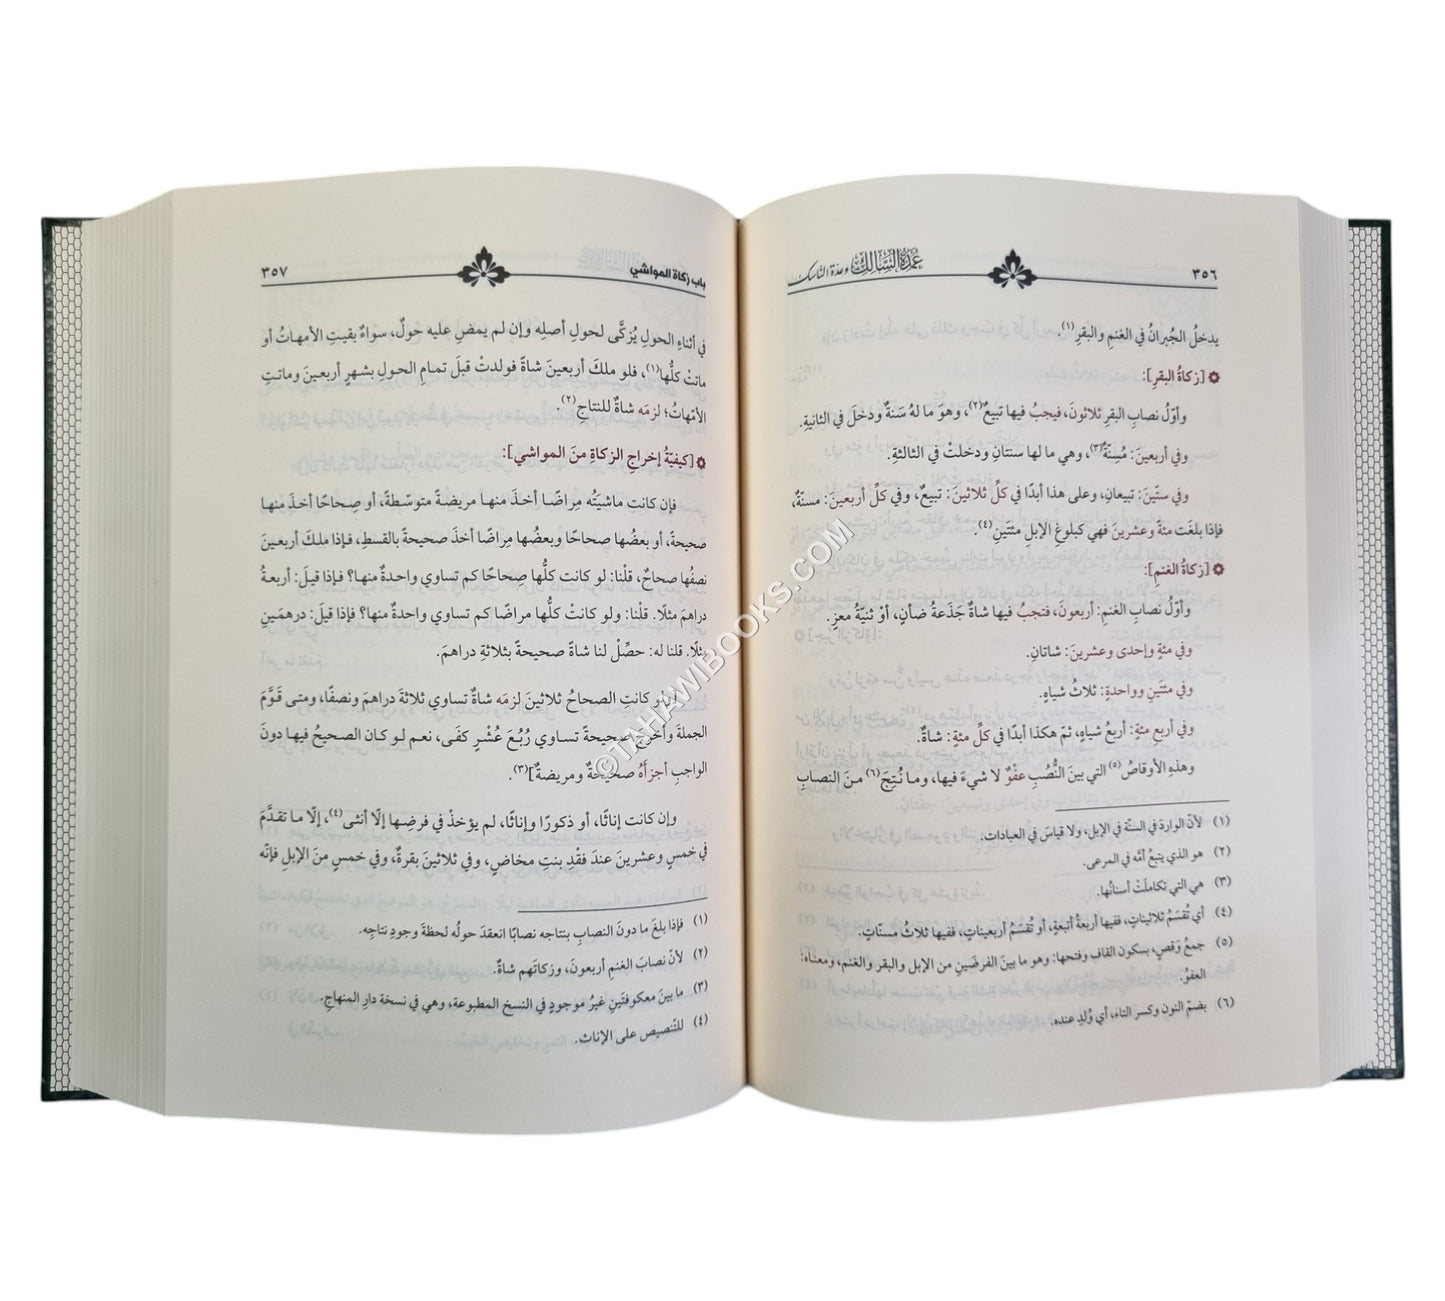 ٣٥٦
عمدة السالك وعدة الناسك
يدخلُ الجُبرانُ في الغنمِ والبقرِ(١).
[زكاةُ البقرِ]:
وأوّلُ نصابِ البقرِ ثلاثونَ، فيجبُ فيها تبيعٌ(٢)، وهوَ ما لهُ سَنةٌ ودخلَ في الثانيةِ.
وفي أربعينَ: مُسِنّةٌ(٣)، وهي ما لها سنتانِ ودخلتْ في الثالثةِ.
وفي ستّينَ: تبيعانِ، وعلى هذا أبدًا في كلِّ ثلاثينَ: تبيعٌ، وفي كلِّ أربعينَ: مسنّةٌ،
فإذا بلغَت مئةً وعشرينَ فهي كبلوغِ الإبلِ مئتَينِ(٤).
[زكاةُ الغنمِ]:
وأوّلُ نصابِ الغنمِ: أربعونَ، فتجبُ فيها شاةٌ جَذَعةُ ضأنٍ، أوْ ثنيّةُ معزٍ.
وفي مئةٍ وإحدى وعشرينَ: شاتانِ.
وفي مئتَينِ وواحدةٍ: ثلاثُ شياهٍ.
وفي أربعِ مئةٍ: أربعُ شياهٍ، ثمّ هكذا أبدًا في كلِّ مئةٍ: شاةٌ.
وهذهِ الأوقاصُ(٥) التي بينَ النُّصُبِ عفْوٌ لا شيءَ فيها، وما نُتِجَ(٦) منَ النصابِ
(١) لأنّ الواردَ في السنّة في الإبل، ولا قياسَ في العبادات.
(٢) هو الذي يتبعُ أمَّه في المرعى.
(٣) هي التي تكاملَتْ أسنانُها.
(٤) أي تُقسَمُ ثلاثيناتٍ، ففيها أربعةُ أتبعةٍ، أو تُقسَمُ أربعيناتٍ، ففيها ثلاثُ مسنّاتٍ.
(٥) جمعُ وَقصٍ، بسكون القاف وفتحها: وهو ما بينَ الفرضَينِ من الإبل والبقر والغنم، ومعناه:
العفوُ.
(٦) بضمّ النون وكسر التاء، أي وُلدٍ عنده.
باب زكاة المواشي
٣٥٧
في أثناءِ الحولِ يُزكَّى لحولِ أصلِه وإن لم يمضِ عليه حولٌ، سواءٌ بقيتِ الأمهاتُ أو
ماتتْ كلُّها(١)، فلو ملكَ أربعينَ شاةً فولدتْ قبلَ تمامِ الحولِ بشهرٍ أربعينَ وماتتِ
الأمّهاتُ؛ لزمَه شاةٌ للنتاجِ(٢).
[كيفيّةُ إخراجِ الزكاةِ منَ المواشي]:
فإن كانت ماشيَتُه مِراضًا أخذَ منها مريضةً متوسّطةً، أو صِحاحًا أخذَ منها
صحيحةً، أو بعضُها صحاحًا وبعضُها مِراضًا أخذَ صحيحةً بالقسطِ، فإذا ملكَ أربعينَ
نصفُها صحاحٌ، قلْنا: لو كانت كلُّها صِحاحًا كم تساوي واحدةٌ منها؟ فإذا قيلَ: أربعةُ
دراهمَ مثلًا. قلْنا: ولو كانتْ كلُّها مراضًا كم تساوي واحدةٌ منها؟ فإذا قيلَ: درهمَينِ
مثلًا. قلنا له: حصِّلْ لنا شاةً صحيحةً بثلاثةِ دراهمَ.
[ولو كانتِ الصحاحُ ثلاثينَ لزمَه شاةٌ تساوي ثلاثةَ دراهمَ ونصفًا، ومتى قَوَّمَ
الجملةَ وأخرجَ صحيحةً تساوي رُبُعَ عُشْرٍ كفَى، نعم لو كان الصحيحُ فيها دونَ
الواجبِ أجزأَهُ صحيحةٌ ومريضةٌ](٣).
وإن كانت إناثًا، أو ذكورًا وإناثًا، لم يؤخذْ في فرضِها إلّا أنثى(٤)، إلّا ما تقدَّمَ
في خمسٍ وعشرينَ عندَ فقْدِ بنتِ مخاضٍ، وفي ثلاثينَ بقرةً، وفي خمسٍ منَ الإبلِ فإنّه
(١) فإذا بلغَ ما دونَ النصابِ بنتاجه نصابًا انعقدَ حولُه لحظةَ وجودِ نتاجِه.
(٢) لأنّ نصابَ الغنمِ أربعونَ، وزكاتَهم شاةٌ.
(٣) ما بينَ معكوفتَينِ غيرُ موجودٍ في النسخ المطبوعة، وهي في نسخة دارِ المنهاجِ.
(٤) للتّنصيصِ على الإناث.
©TAHAWIBOOKS.COM